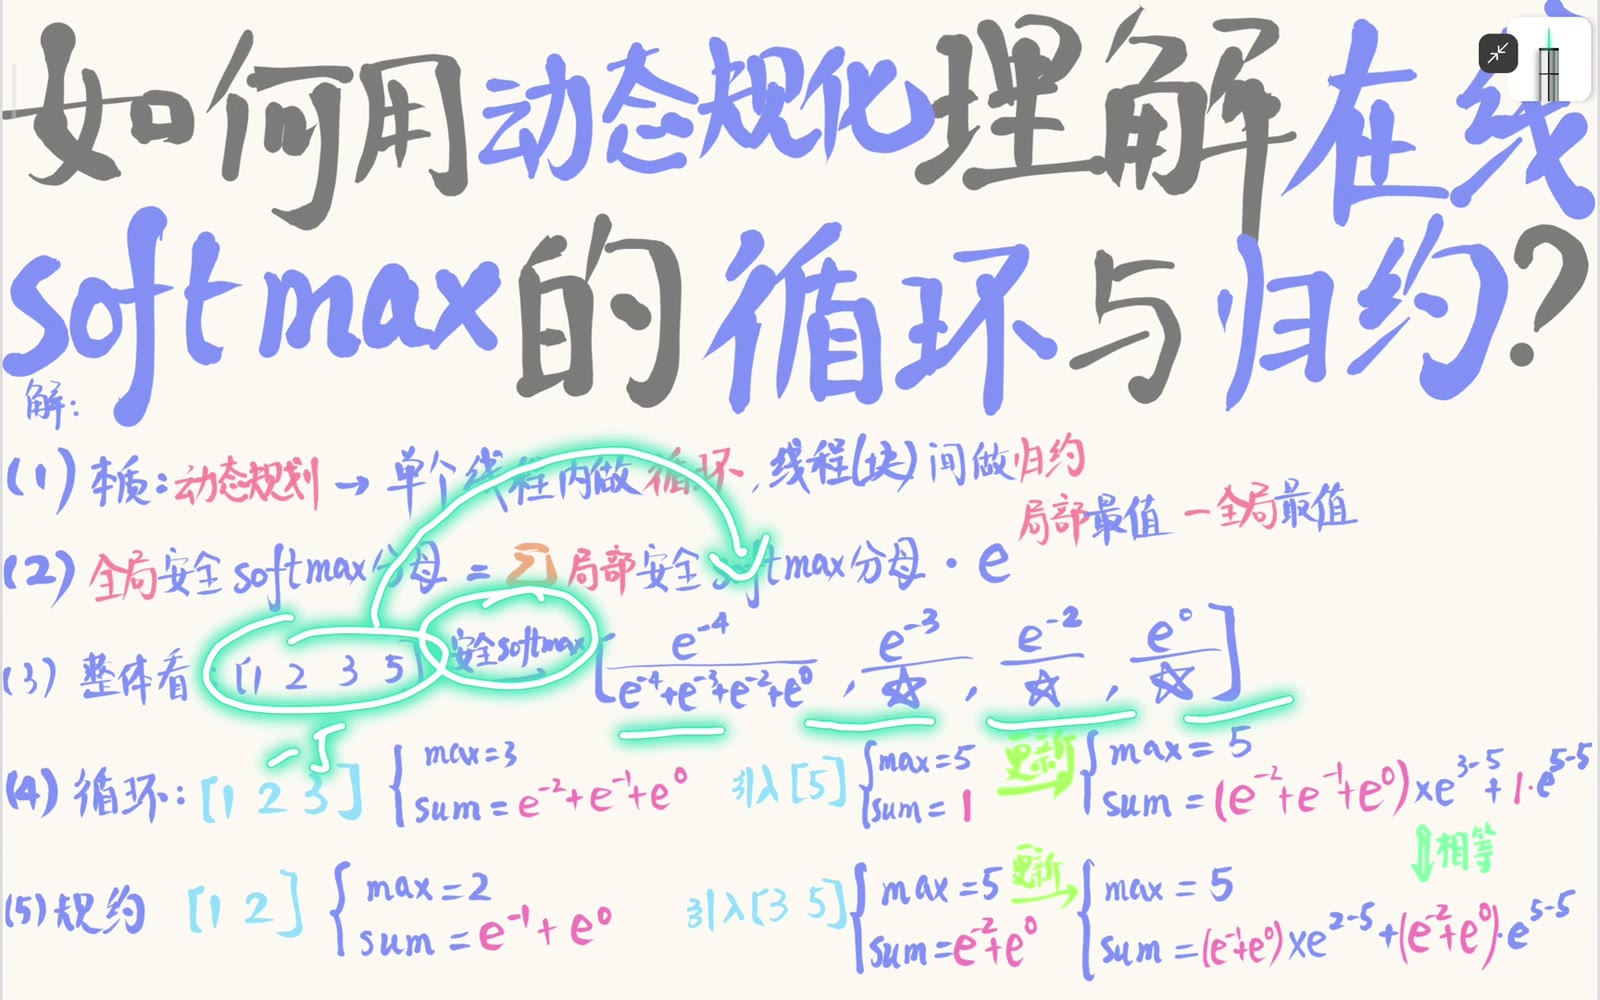 如何用动态规化理解在线
softmax的循环与归约?
解:
(1) 本质:动态规划 → 单个线程内做循环,线程(块)间做归约
(2) 全局安全softmax分母 = Σ 局部安全softmax分母 · e^(局部最值 - 全局最值)
(3) 整体看 [1 2 3 5] 安全softmax→ [e^-4/(e^-4+e^-3+e^-2+e^0), e^-3/☆, e^-2/☆, e^0/☆]
-5
(4) 循环: [1 2 3] { max=3 sum=e^-2+e^-1+e^0 引入[5] { max=5 sum=1 更新→ { max=5 sum=(e^-2+e^-1+e^0)×e^(3-5)+1·e^(5-5)
⇓相等
(5) 规约 [1 2] { max=2 sum=e^-1+e^0 引入[3 5] { max=5 sum=e^-2+e^0 更新→ { max=5 sum=(e^-1+e^0)×e^(2-5)+(e^-2+e^0)·e^(5-5)